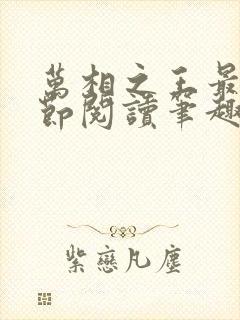 萬相之王最
節閱讀筆趣
紫戀凡塵